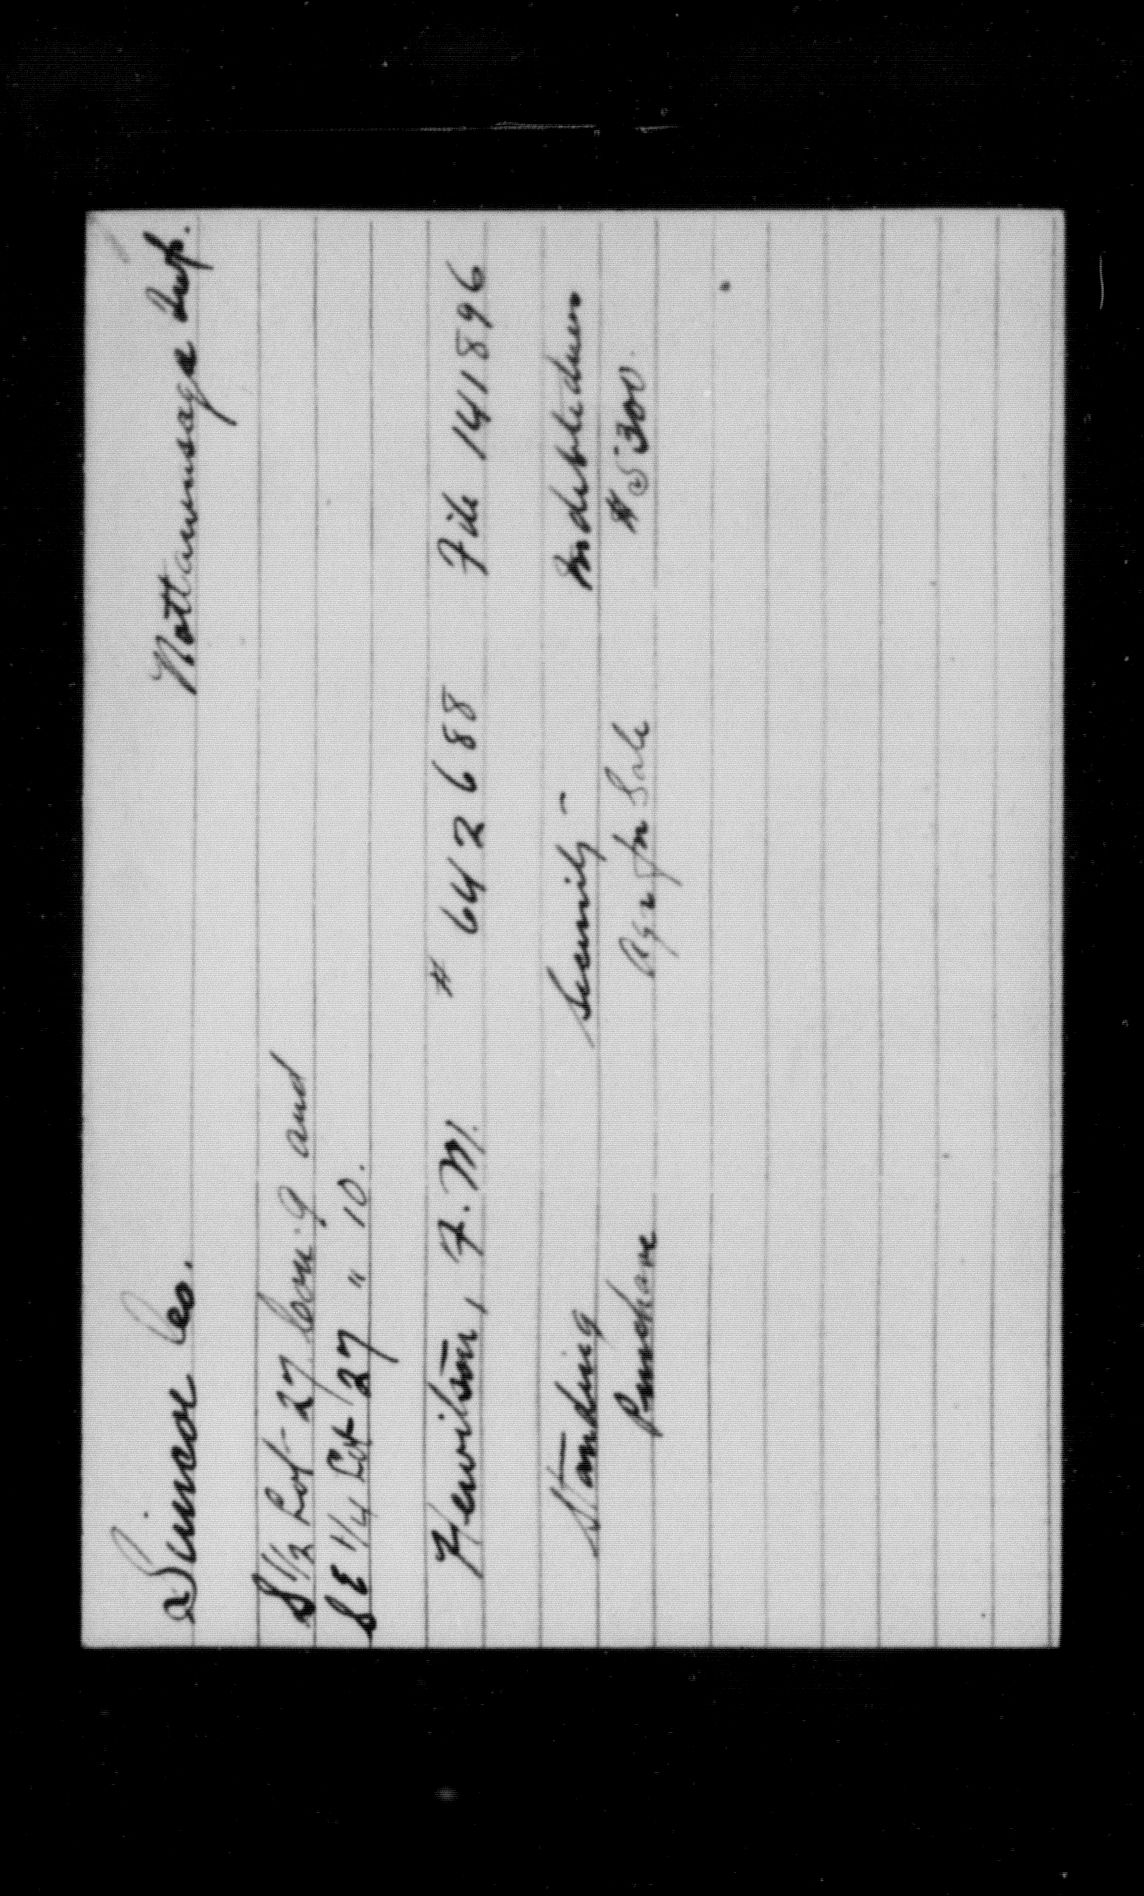 Simcoe Co. Nottawasaga Twp.
S 1/2 Lot 27 Con. 9 and
S E 1/4 Lot 27 " 10.
Hewitson, F. M. # 642688 File 141896
Standing Security - Indebtedness
Purchase Agr for Sale $5300.